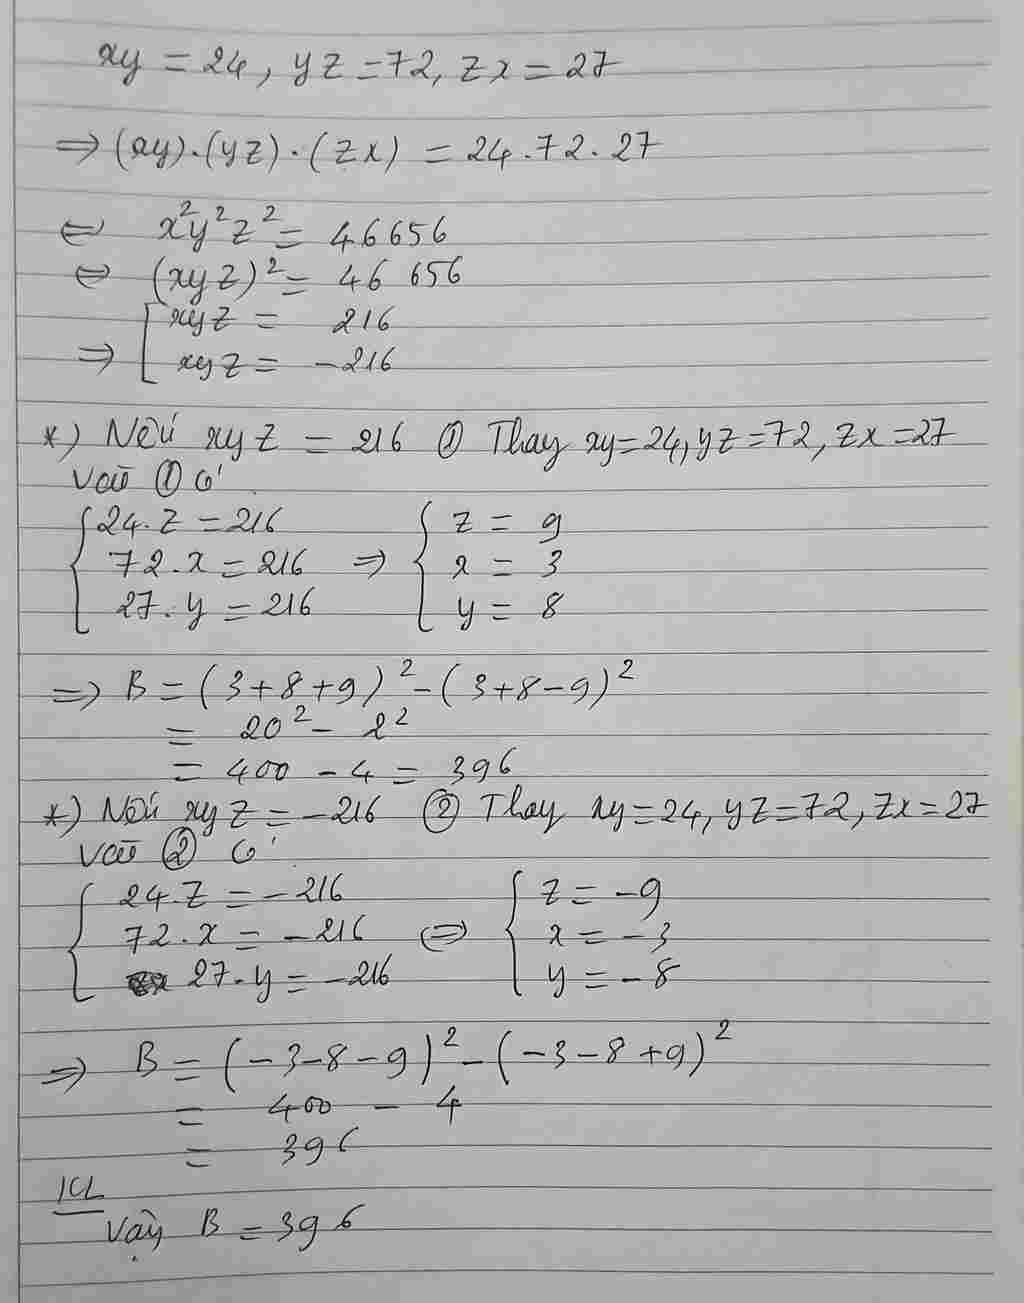 xy = 24, yz = 72, zx = 27
⇒ (xy).(yz).(zx) = 24.72.27
⇔ x²y²z² = 46656
⇔ (xyz)² = 46 656
xyz = 216
⇒ [ xyz = -216
*) Nếu xyz = 216 ① Thay xy=24, yz=72, zx=27
vào ① có
{ 24.z = 216 { z = 9
72.x = 216 ⇒ x = 3
27.y = 216 y = 8
⇒ B = (3+8+9)² - (3+8-9)²
= 20² - 2²
= 400 - 4 = 396
*) Nếu xyz = -216 ② Thay xy=24, yz=72, zx=27
vào ② có
{ 24.z = -216 { z = -9
72.x = -216 ⇔ x = -3
27.y = -216 y = -8
⇒ B = (-3-8-9)² - (-3-8+9)²
= 400 - 4
= 396
KL
Vậy B = 396